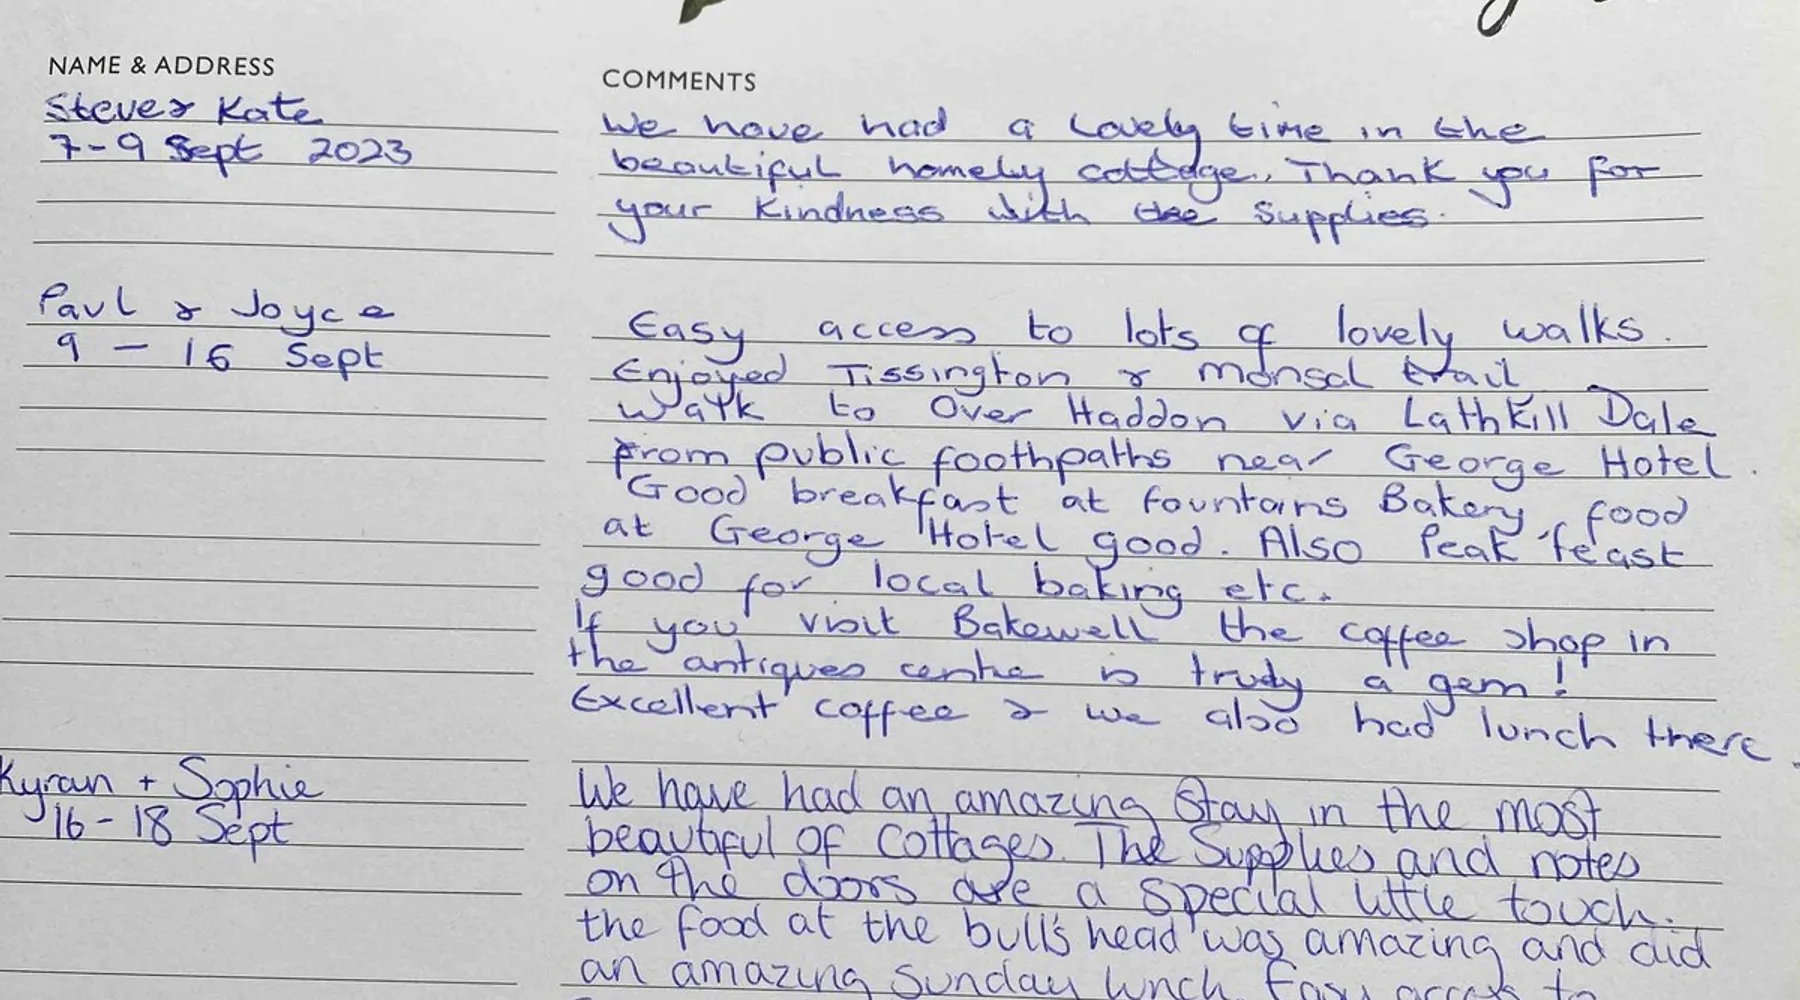 NAME & ADDRESS
COMMENTS
Steve & Kate
7-9 Sept 2023
We have had a lovely time in the
beautiful homely cottage. Thank you for
your kindness with the supplies.
Paul & Joyce
9 - 16 Sept
Easy access to lots of lovely walks.
Enjoyed Tissington & monsal trail
Walk to Over Haddon via Lathkill Dale
from public foothpaths near George Hotel.
Good breakfast at fountains Bakery, food
at George Hotel good. Also Peak feast
good for local baking etc.
If you visit Bakewell the coffee shop in
the antiques centre is truly a gem!
Excellent coffee & we also had lunch there.
Kyran + Sophie
16-18 Sept
We have had an amazing stay in the most
beautiful of cottages. The Supplies and notes
on the doors are a special little touch.
the food at the bull's head was amazing and did
an amazing Sunday lunch. Easy access to